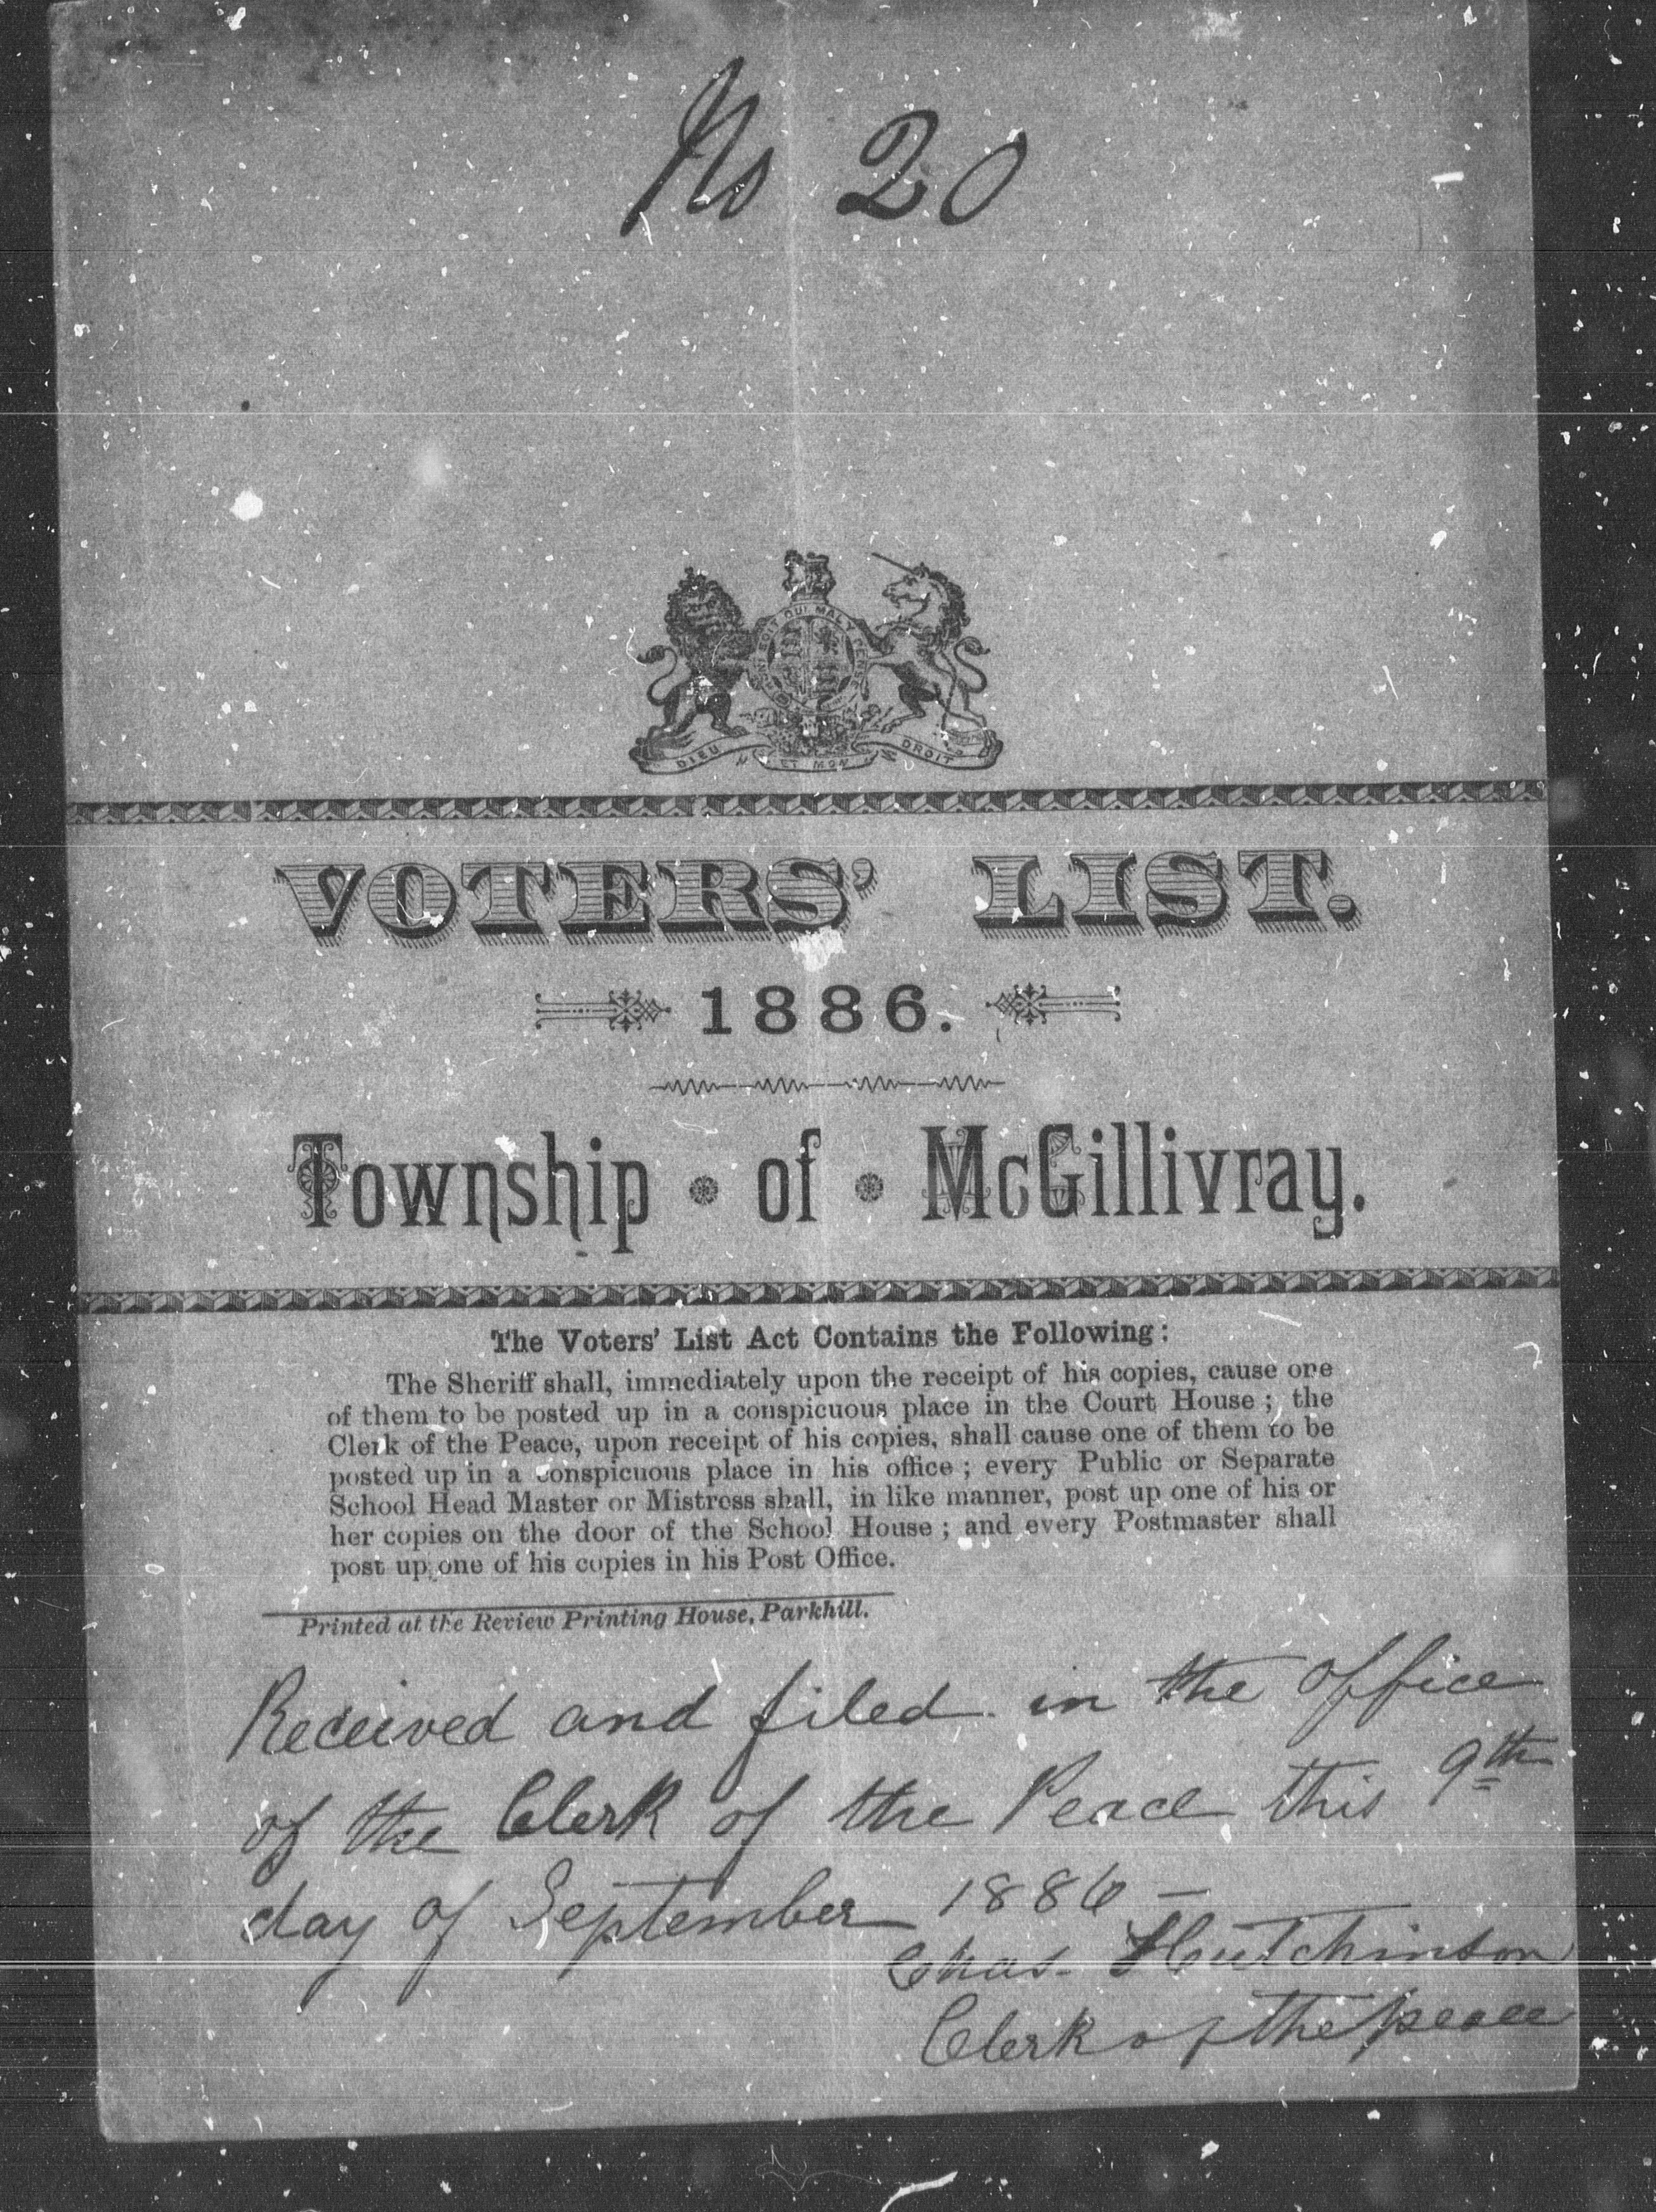 No 20
HONI SOIT QUI MAL Y PENSE
DIEU ET MON DROIT
VOTERS' LIST.
1886.
Township of McGillivray.
The Voters' List Act Contains the Following:
The Sheriff shall, immediately upon the receipt of his copies, cause one
of them to be posted up in a conspicuous place in the Court House ; the
Clerk of the Peace, upon receipt of his copies, shall cause one of them to be
posted up in a conspicuous place in his office ; every Public or Separate
School Head Master or Mistress shall, in like manner, post up one of his or
her copies on the door of the School House ; and every Postmaster shall
post up one of his copies in his Post Office.
Printed at the Review Printing House, Parkhill.
Received and filed in the office
of the Clerk of the Peace this 9th
day of September 1886 —
Chas. Hutchinson
Clerk of the peace